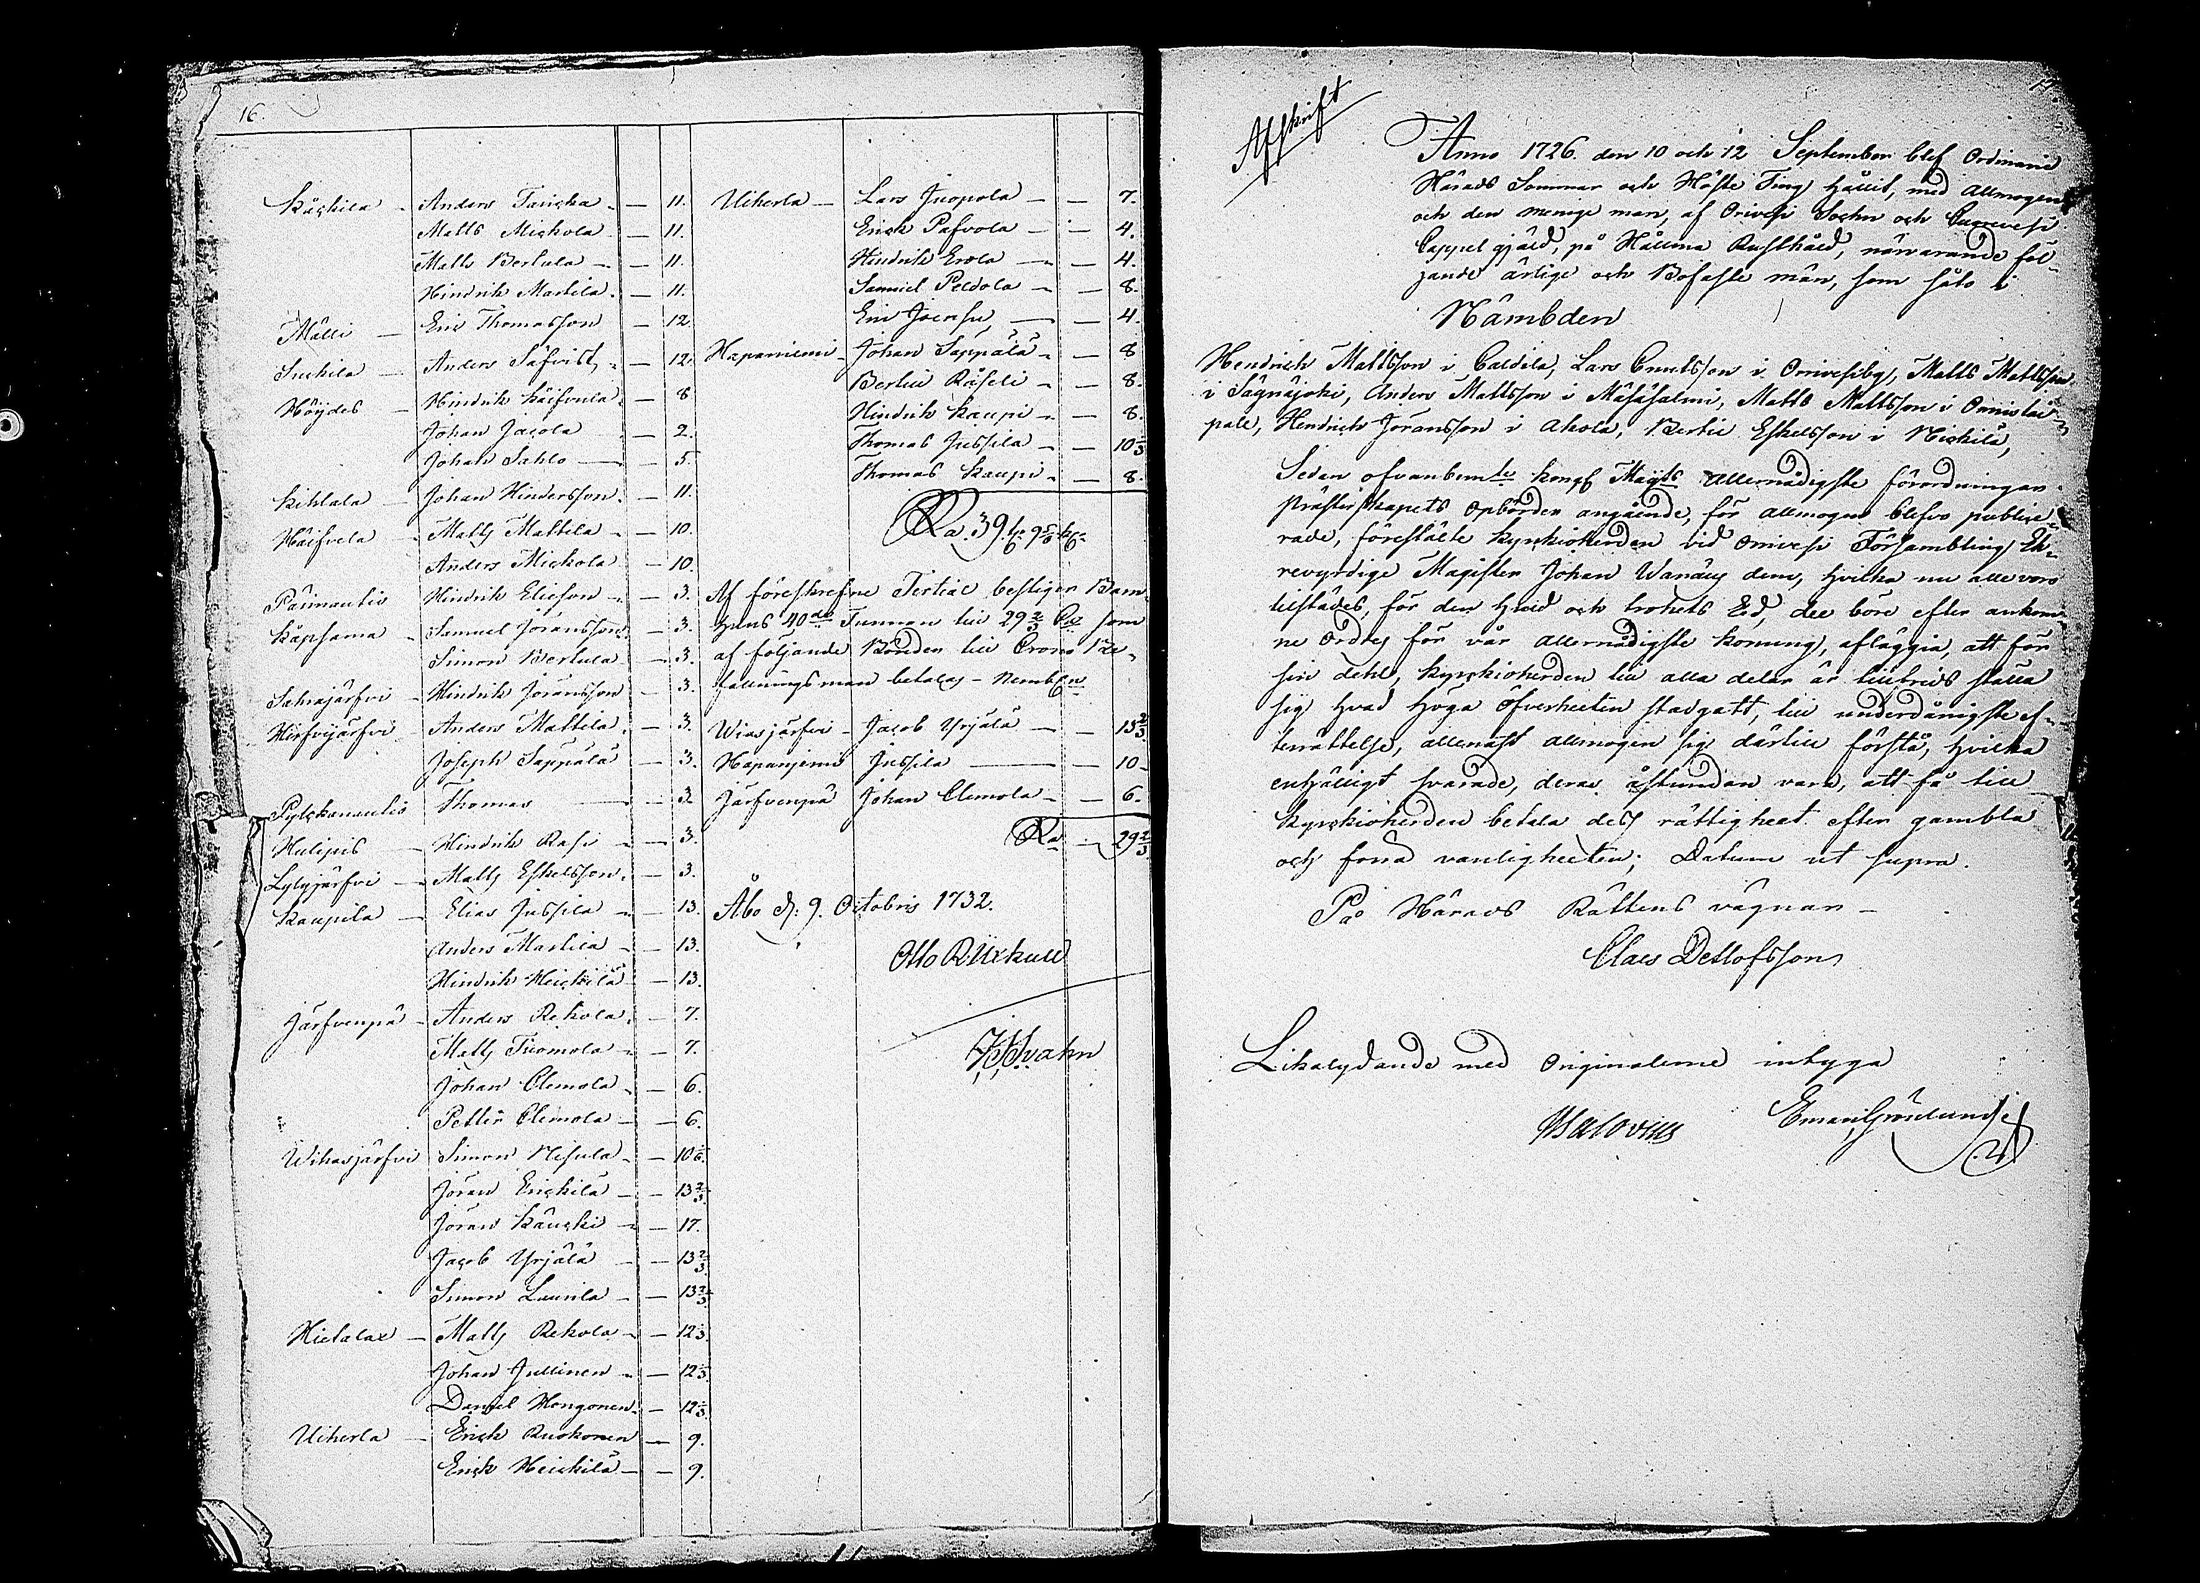 16.
Kåckila - Anders Tauska - 11.
Matts Mickola - 11.
Matts Bertula - 11.
Hindrik Martila - 11.
Mälli - Eric Thomasson - 12
Suckila - Anders Säfvist - 12.
Höijdes - Hindrik Käifvula - 8
Johan Jacola - 2.
Johan Sahlo - 5.
Kihlala - Johan Hindersson - 11.
Häifvela - Matts Mattila - 10.
Anders Mickola - 10.
Hindrik Eliesson - 3.
Kåpsama - Samuel Jöransson - 3.
Simon Bertula - 3.
Salmajärfvi - Hindrik Jöransson - 3.
Hirfvijärfvi - Anders Mattila - 3.
Joseph Sappala - 3.
Thomas - 3.
Hulipis - Hindrik Rasi - 3.
Lylyjärfvi - Matts Eskelsson - 3.
Kaupila - Elias Jussila - 13.
Anders Martila - 13.
Hindrik Heickilä - 13.
Järfvenpä - Anders Rekola - 7.
Matts Tuomola - 7.
Johan Clemola - 6.
Petter Clemola - 6.
Wihasjärfvi Simon Nisula - 10 1/6.
Jöran Erickilä - 13 2/3
Jöran Käucki - 17.
Jacob Yrjälä - 13 2/3
Simon Luurila - 13 2/3
Hietalax - Matts Rekola - 12 1/3.
Johan Jullinen - 12 1/3.
Daniel Hongonen - 12 1/3.
Uiherla - Erick Ruokonen - 9.
Erick Heickilä - 9.
Uiherla - Lars Juopola - 7.
Erick Pafvola - 4.
Hindrik Erola - 4.
Samuel Peldola - 8.
Eric Joensu - 4.
Hapaniemi - Johan Säppälä - 8
Bertil Räseli - 8.
Hindrik Kaupi - 8.
Thomas Jussila - 10 1/3
Thomas Kaupi - 8.
Af föreskrefne Tertial bestiger Barn
huus 40de Tunnan till 29 2/3 som
af följande Bönder till Crono Be-
fallningsman betalas - Nembl
Wiasjärfvi - Jacob Yrjälä - 13 2/3
Hapanjemi Jussila - 10
Järfvenpä Johan Clemola - 6.
29 2/3
Åbo d: 9. Octobris 1732.
Otto R Üxkull
Afskrift
Anno 1726. den 10 och 12 September blef Ordinarie
Härads Sommar och Höste Ting hållit, med Allmogen
och den menige man, af Orivesi Sockn och Curruvesi
Cappel gjäld, på Hållima Rusthåld, närvarande föl-
jande ärlige och Bofaste män, som såto i
Nämbden
Hendrich Mattsson i Caldila, Lars Cnutsson i Orivesiby, Matts Mattsson
i Sägnäjoki, Anders Mattsson i Mäsäsalmi, Matts Mattsson i Onnistai-
pale, Hendrich Jöransson i Ahola, Bertil Eskelsson i Nickilä,
Sedan ofvanbemte Kongl Mayts allernådigste förordningar
Prästerskapets Opbörder angående, för Allmogen blefvo publice-
rade, förestälte Kyrckioherden vid Orivesi Försambling Eh-
revyrdige Magister Johan Wanæus dem, hvilka nu alle voro
tillstädes, för den Huld och trohets Ed, dee böre efter ankom-
ne Ordres för vår allernådigste Konung, afläggia, att för
sin dehl, Kyrckioherden till alla delar är tillbuds ställa
sig hvad Höga Öfverheeten stadgatt, till underdånigste ef-
terrättelse, allenast Allmogen sig därtill förstå, hvilka
enhälligt svarade, deras åstundan vara, att få till
Kyrckioherden betala dess rättigheet efter gambla
och förra vanligheeten; Datum ut supra.
På Härads Rättens vägnar -
Claes Detlofsson
Likalydande med Originalerne intyga
Eman. Grönlund